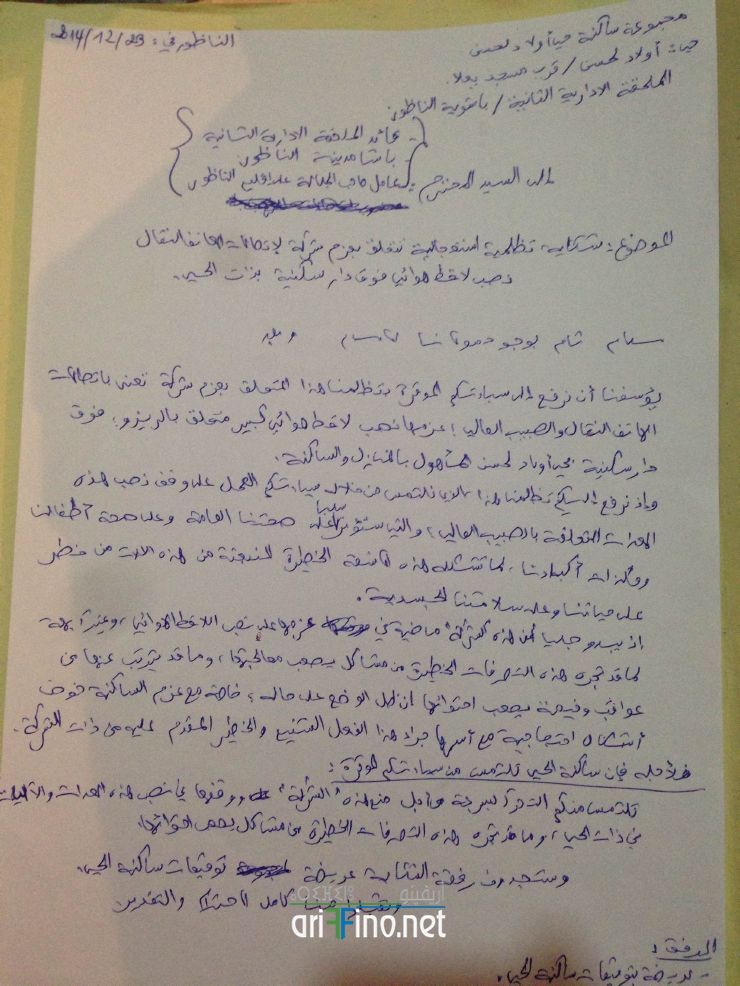 الناظور في: 2014/12/23
مجموعة ساكنة حي أولاد لحسن
حي أولاد لحسن / قرب مسجد بولا
الملحقة الادارية الثانية / باشوية الناظور
- قائد الملحقة الادارية الثانية
باشا مدينة الناظور
الى السيد المحترم: عامل صاحب الجلالة على اقليم الناظور
الموضوع: شكاية تظلمية استعجالية تتعلق بعزم شركة لاتصالات الهاتف النقال
نصب لاقط هوائي فوق دار سكنية بذات الحي.
سلام تام بوجود مولانا الامام وبعد
يؤسفنا أن نرفع إلى سيادتكم الموقرة تظلمنا هذا المتعلق بعزم شركة تعنى باتصالات
الهاتف النقال والصبيب العالي؛ عزمها نصب لاقط هوائي كبير متعلق بالريزو؛ فوق
دار سكنية بحي أولاد لحسن المأهول بالمنازل والساكنة.
وإذ نرفع إليكم تظلمنا هذا، نلتمس من خلال سيادتكم العمل على وقف نصب هذه
المعدات المتعلقة بالصبيب العالي، والتي ستؤثر سلبا على صحتنا العامة وعلى صحة أطفالنا
وفلذات أكبادنا، لما تشكله هذه الأشعة الخطيرة المنبعثة من هذه الآلات من خطر
على حياتنا وعلى سلامتنا الجسدية.
اذ يبدو جديا أن هذه "الشركة" ماضية في عزمها على نصب اللاقط الهوائي، وغير آبهة
لما قد تجره هذه التصرفات الخطيرة من مشاكل يصعب معالجتها، وما قد يترتب عنها من
عواقب وخيمة يصعب احتواؤها ان ظل الوضع على حاله، خاصة مع عزم الساكنة خوض
أشكال احتجاجية مع أسرها جراء هذا الفعل الشنيع والخطير المقدم عليه من ذات الشركة.
لأجله فإن ساكنة الحي تلتمس من سيادتكم الموقرة:
تلتمس منكم التدخل بسرعة من أجل منع هذه "الشركة" ووقفها في نصب هذه المعدات والآليات
في ذات الحي، وما قد تجره هذه التصرفات الخطيرة من مشاكل يصعب احتواؤها.
وستجدون رفقة الشكاية عريضة توقيعات ساكنة الحي.
وتقبلوا منا كامل الاحترام والتقدير
أريفينو
ariFFino.net
المرفق:
- عريضة بتوقيعات ساكنة الحي.